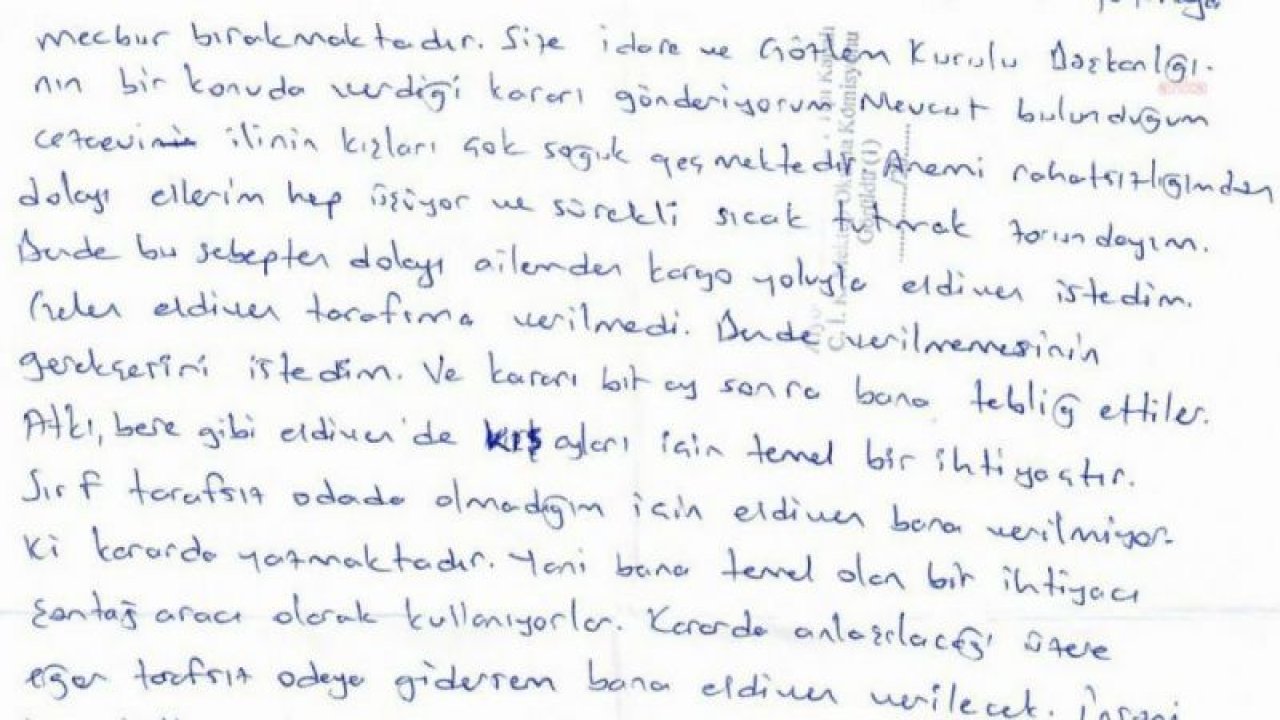 mecbur bırakmaktadır. Size idare ve Gözlem Kurulu Başkanlığı-
nın bir konuda verdiği kararı gönderiyorum Mevcut bulunduğum
cezaevinin ilinin kışları çok soğuk geçmektedir Anemi rahatsızlığımdan
dolayı ellerim hep üşüyor ve sürekli sıcak tutmak zorundayım.
Bende bu sebepten dolayı ailemden kargo yoluyla eldiven istedim.
Gelen eldiven tarafıma verilmedi. Bende verilmemesinin
gerekçesini istedim. Ve kararı bir ay sonra bana tebliğ ettiler.
Atkı, bere gibi eldiven'de kış ayları için temel bir ihtiyaçtır.
Sırf tarafsız odada olmadığım için eldiven bana verilmiyor.
Ki kararda yazmaktadır. Yani bana temel olan bir ihtiyacı
şantaj aracı olarak kullanıyorlar. Kararda anlaşılacağı üzere
eğer tarafsız odaya gidersem bana eldiven verilecek. İnsani
Komisyonu
Görüldü (1)
anka